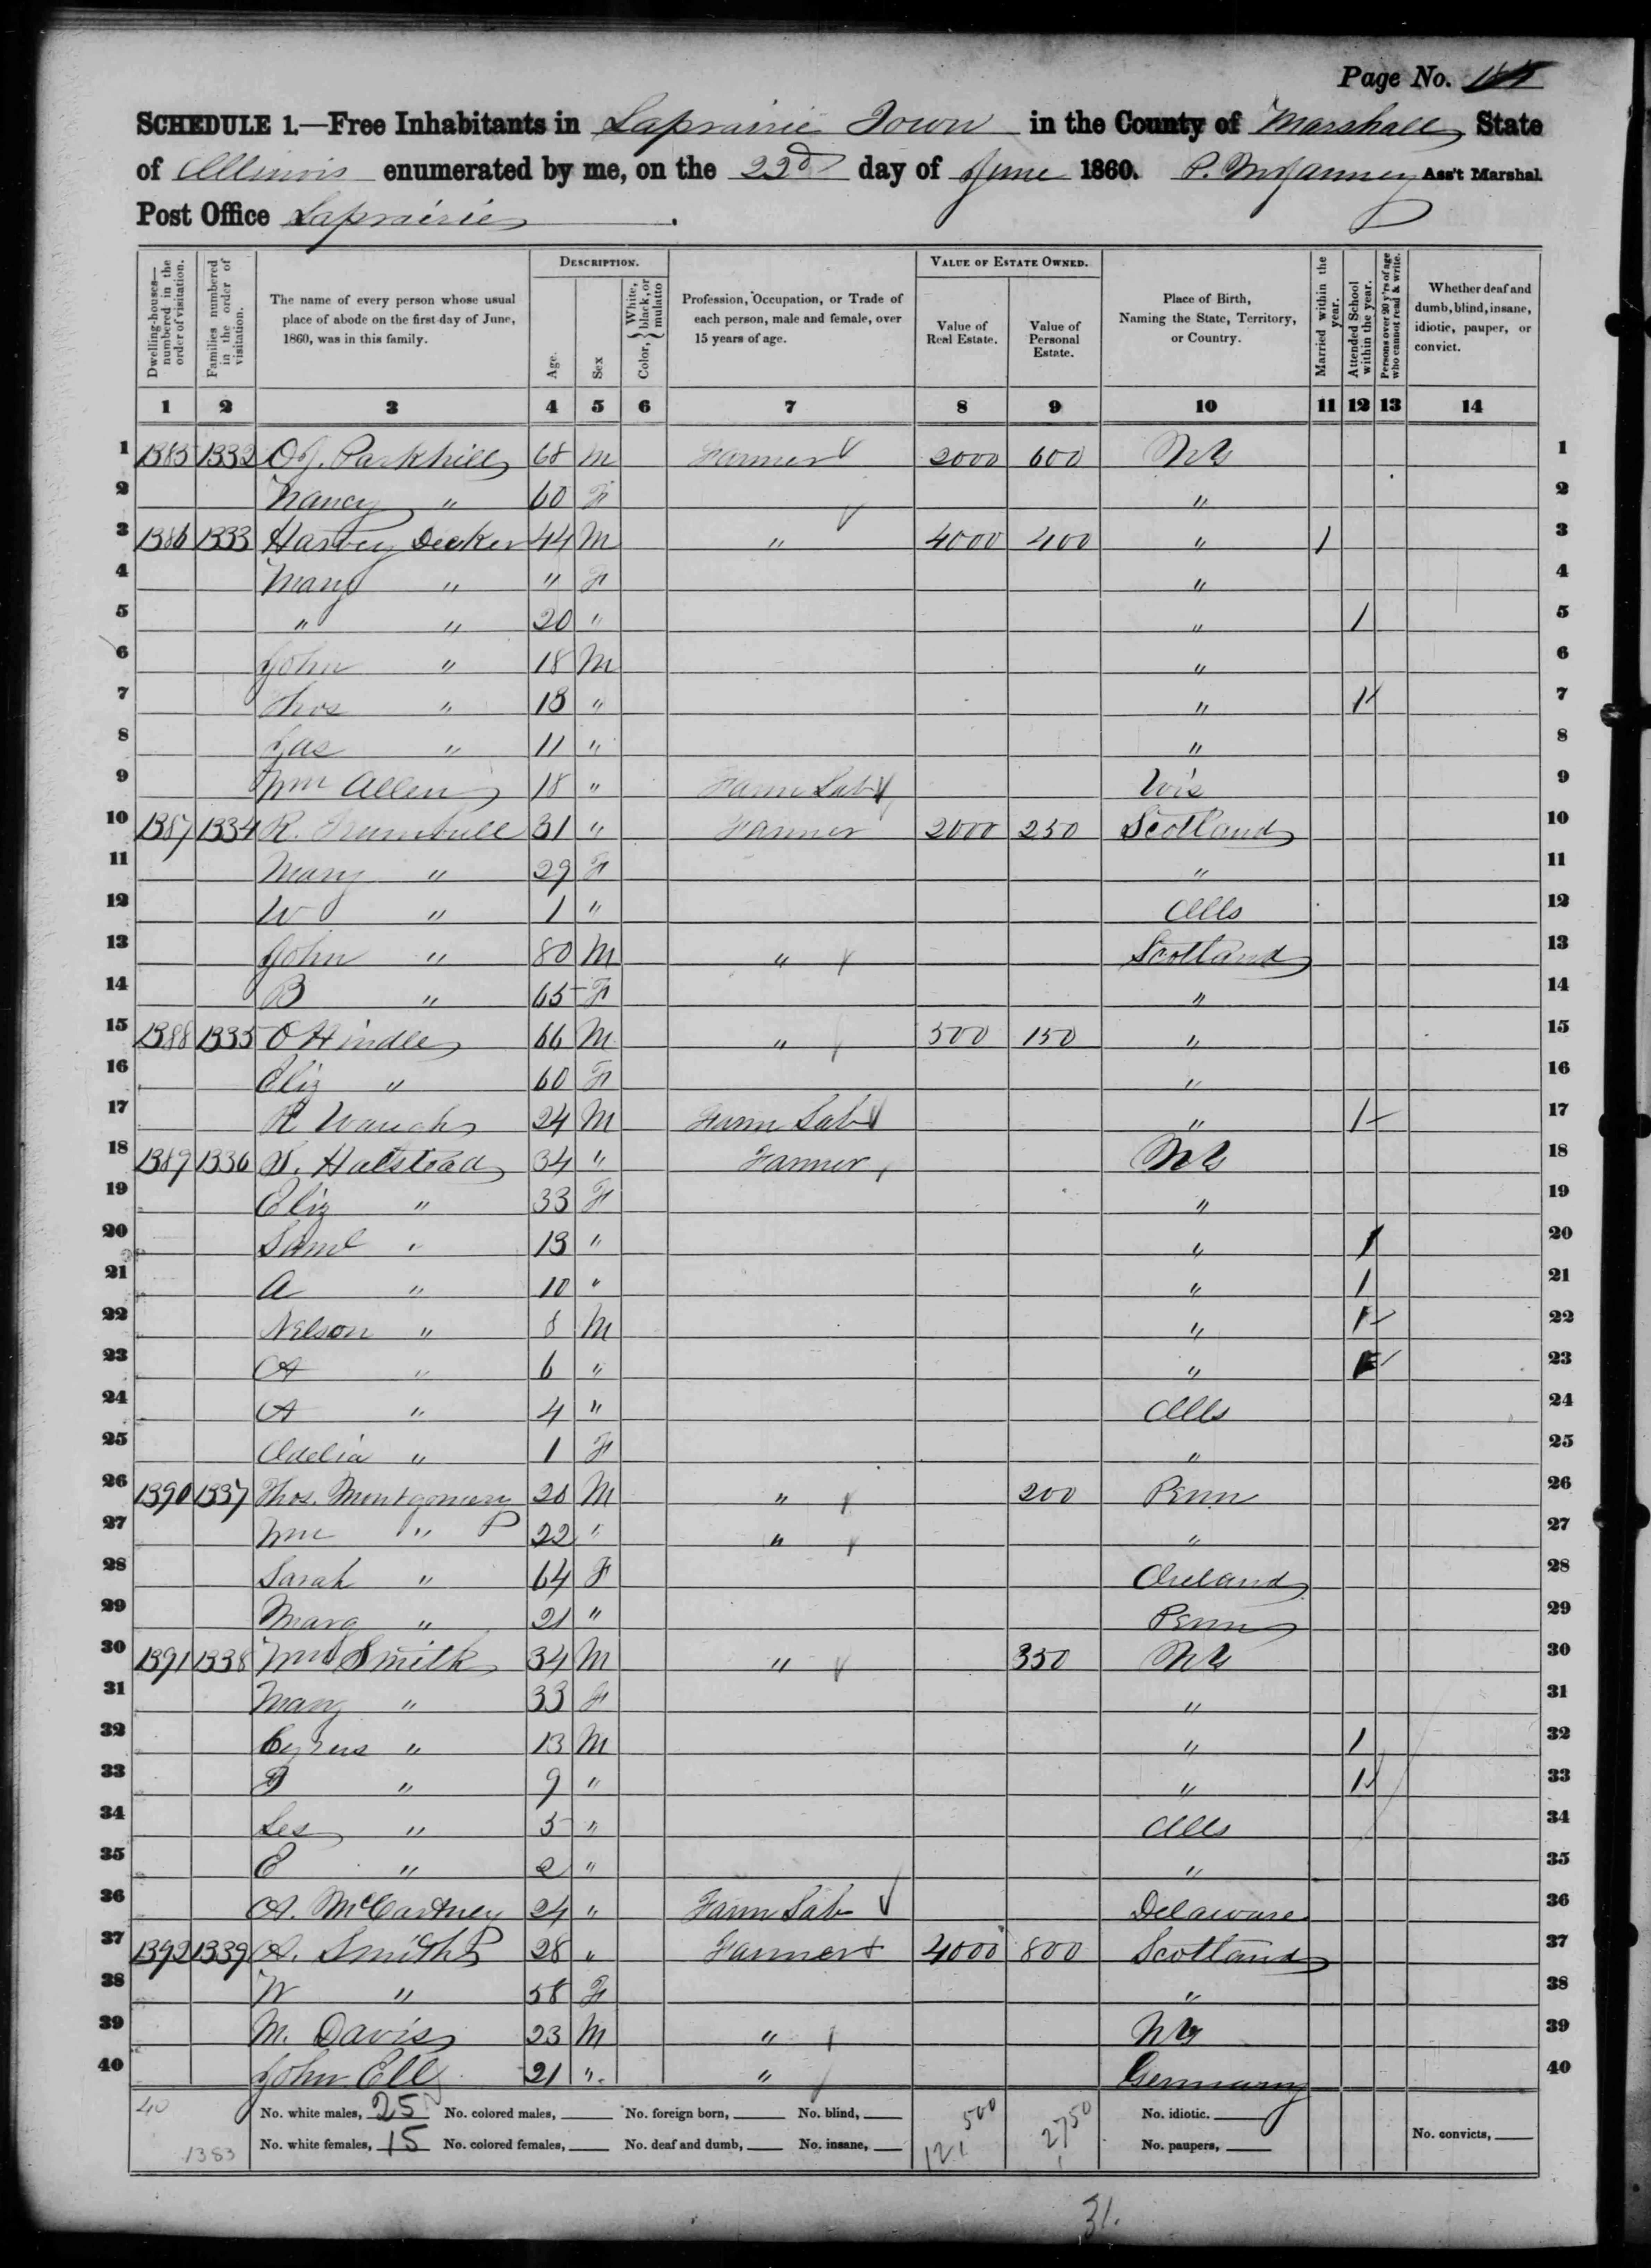 Page No.
SCHEDULE 1.—Free Inhabitants in Laprairie Town in the County of Marshall State
of Illinois enumerated by me, on the 22d day of June 1860. Ass't Marshal.
Post Office Laprairie .
Dwelling-houses—numbered in the order of visitation. Families numbered in the order of visitation. The name of every person whose usual place of abode on the first day of June, 1860, was in this family. DESCRIPTION. Age. Sex Color, White, black, or mulatto Profession, Occupation, or Trade of each person, male and female, over 15 years of age. VALUE OF ESTATE OWNED. Value of Real Estate. Value of Personal Estate. Place of Birth, Naming the State, Territory, or Country. Married within the year. Attended School within the year. Persons over 20 y'rs of age who cannot read & write. Whether deaf and dumb, blind, insane, idiotic, pauper, or convict.
1 2 3 4 5 6 7 8 9 10 11 12 13 14
1 1385 1332 Parkhill 68 M Farmer 2000 600 NY 1
2 Nancy " 60 F " 2
3 1386 1333 Harvey Decker 44 M " 4000 400 " 1 3
4 Mary " " F " 4
5 " " 20 " " 1 5
6 John " 18 M " 6
7 Thos " 13 " " 1 7
8 Jas " 11 " " 8
9 Wm Allen 18 " Farm Lab Wis 9
10 1387 1334 R. Trumbull 31 " Farmer 2000 250 Scotland 10
11 Mary " 29 F " 11
12 W " 1 " Ills 12
13 John " 80 M " Scotland 13
14 B " 65 F " 14
15 1388 1335 O Hindle 66 M " 500 150 " 15
16 Eliz " 60 F " 16
17 R Waugh 24 M Farm Lab " 1 17
18 1389 1336 Halstead 34 " Farmer NY 18
19 Eliz " 33 F " 19
20 Saml " 13 " " 1 20
21 A " 10 " " 1 21
22 Nelson " 8 M " 1 22
23 A " 6 " " 1 23
24 A " 4 " Ills 24
25 Adelia " 1 F " 25
26 1390 1337 Thos. Montgomery 28 M " 200 Penn 26
27 Wm " P 22 " " " 27
28 Sarah " 64 F Ireland 28
29 Marg " 21 " Penn 29
30 1391 1338 Wm Smith 34 M " 350 NY 30
31 Mary " 33 F " 31
32 Cyrus " 13 M " 1 32
33 " 9 " " 1 33
34 Les " 5 " Ills 34
35 E " 2 " " 35
36 A. McCartney 24 " Farm Lab Delaware 36
37 1392 1339 A. Smith 28 " Farmer 4000 800 Scotland 37
38 W " 58 F " 38
39 M. Davis 23 M " NY 39
40 John Ell 21 " " Germany 40
40 No. white males, 25 No. colored males, No. foreign born, No. blind, 500 2750 No. idiotic.
1383 No. white females, 15 No. colored females, No. deaf and dumb, No. insane, 121 No. paupers, No. convicts,
31.